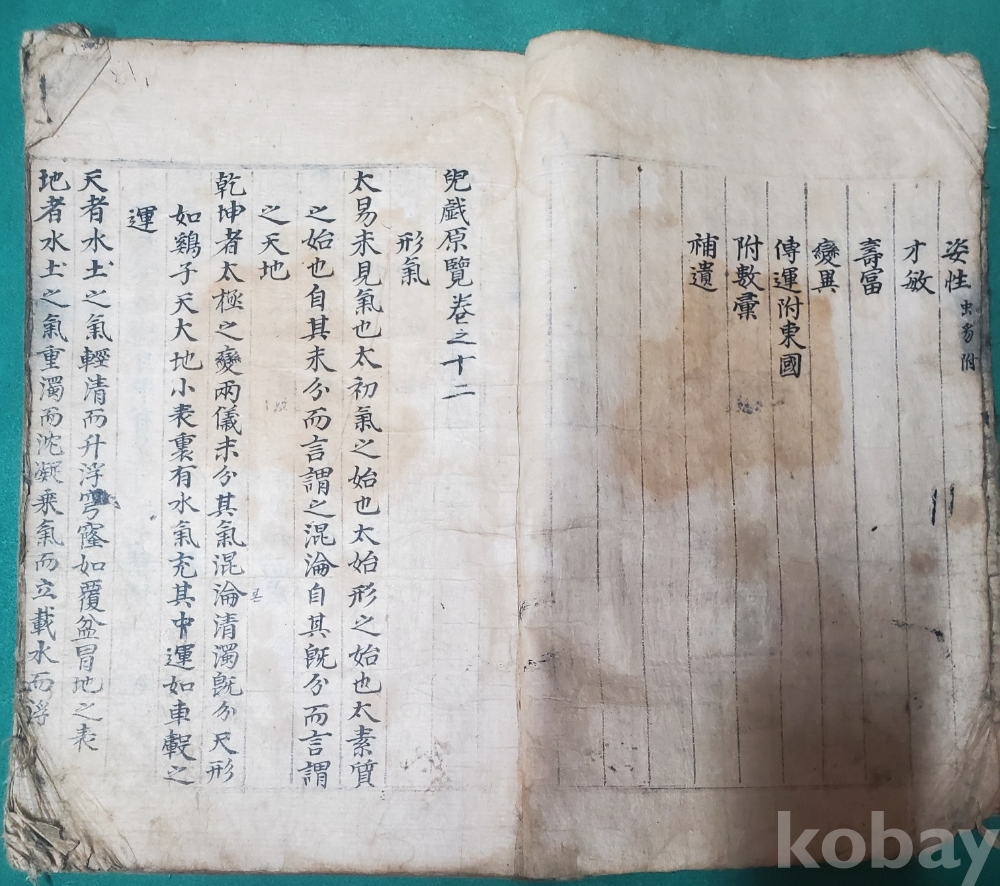 姿性虫豸附
才敏
壽富
變異
傳運附東國
附數彙
補遺
兒戱原覽卷之十二
形氣
太易未見氣也太初氣之始也太始形之始也太素質
之始也自其未分而言謂之混淪自其旣分而言謂
之天地
乾坤者太極之變兩儀未分其氣混淪清濁旣分天形
如鷄子天大地小表裏有水氣充其中運如車轂之
運
天者水土之氣輕清而升浮穹窿如覆盆冒地之表
地者水土之氣重濁而沈凝乘氣而立載水而浮
kobay